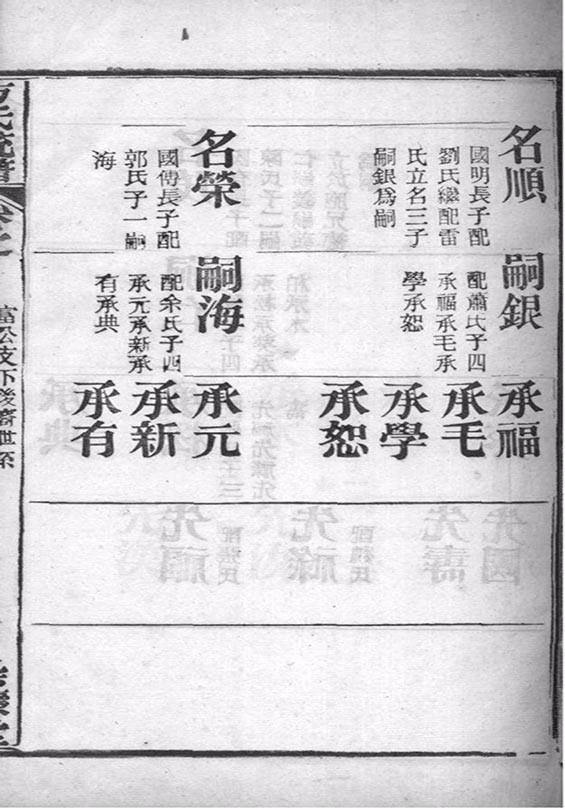 名順
國明長子配
劉氏繼配雷
氏立名三子
嗣銀爲嗣
嗣銀
配蕭氏子四
承福承毛承
學承恕
承福
承毛
承學
承恕
名榮
國傳長子配
郭氏子一嗣
海
嗣海
配余氏子四
承元承新承
有承典
承元
承新
承有
富公支下後裔世系